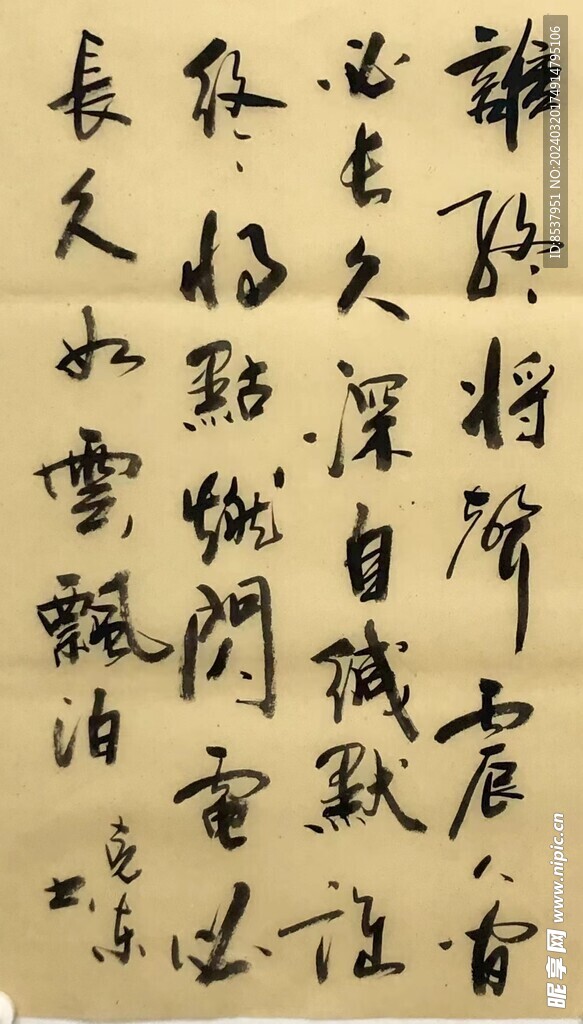 誰終将聲震人间
必长久深自緘默誰
終将點燃閃電必
長久如雲飄泊
东书
ID:8537951 NO:20240320174914795106
昵享网 www.nipic.cn